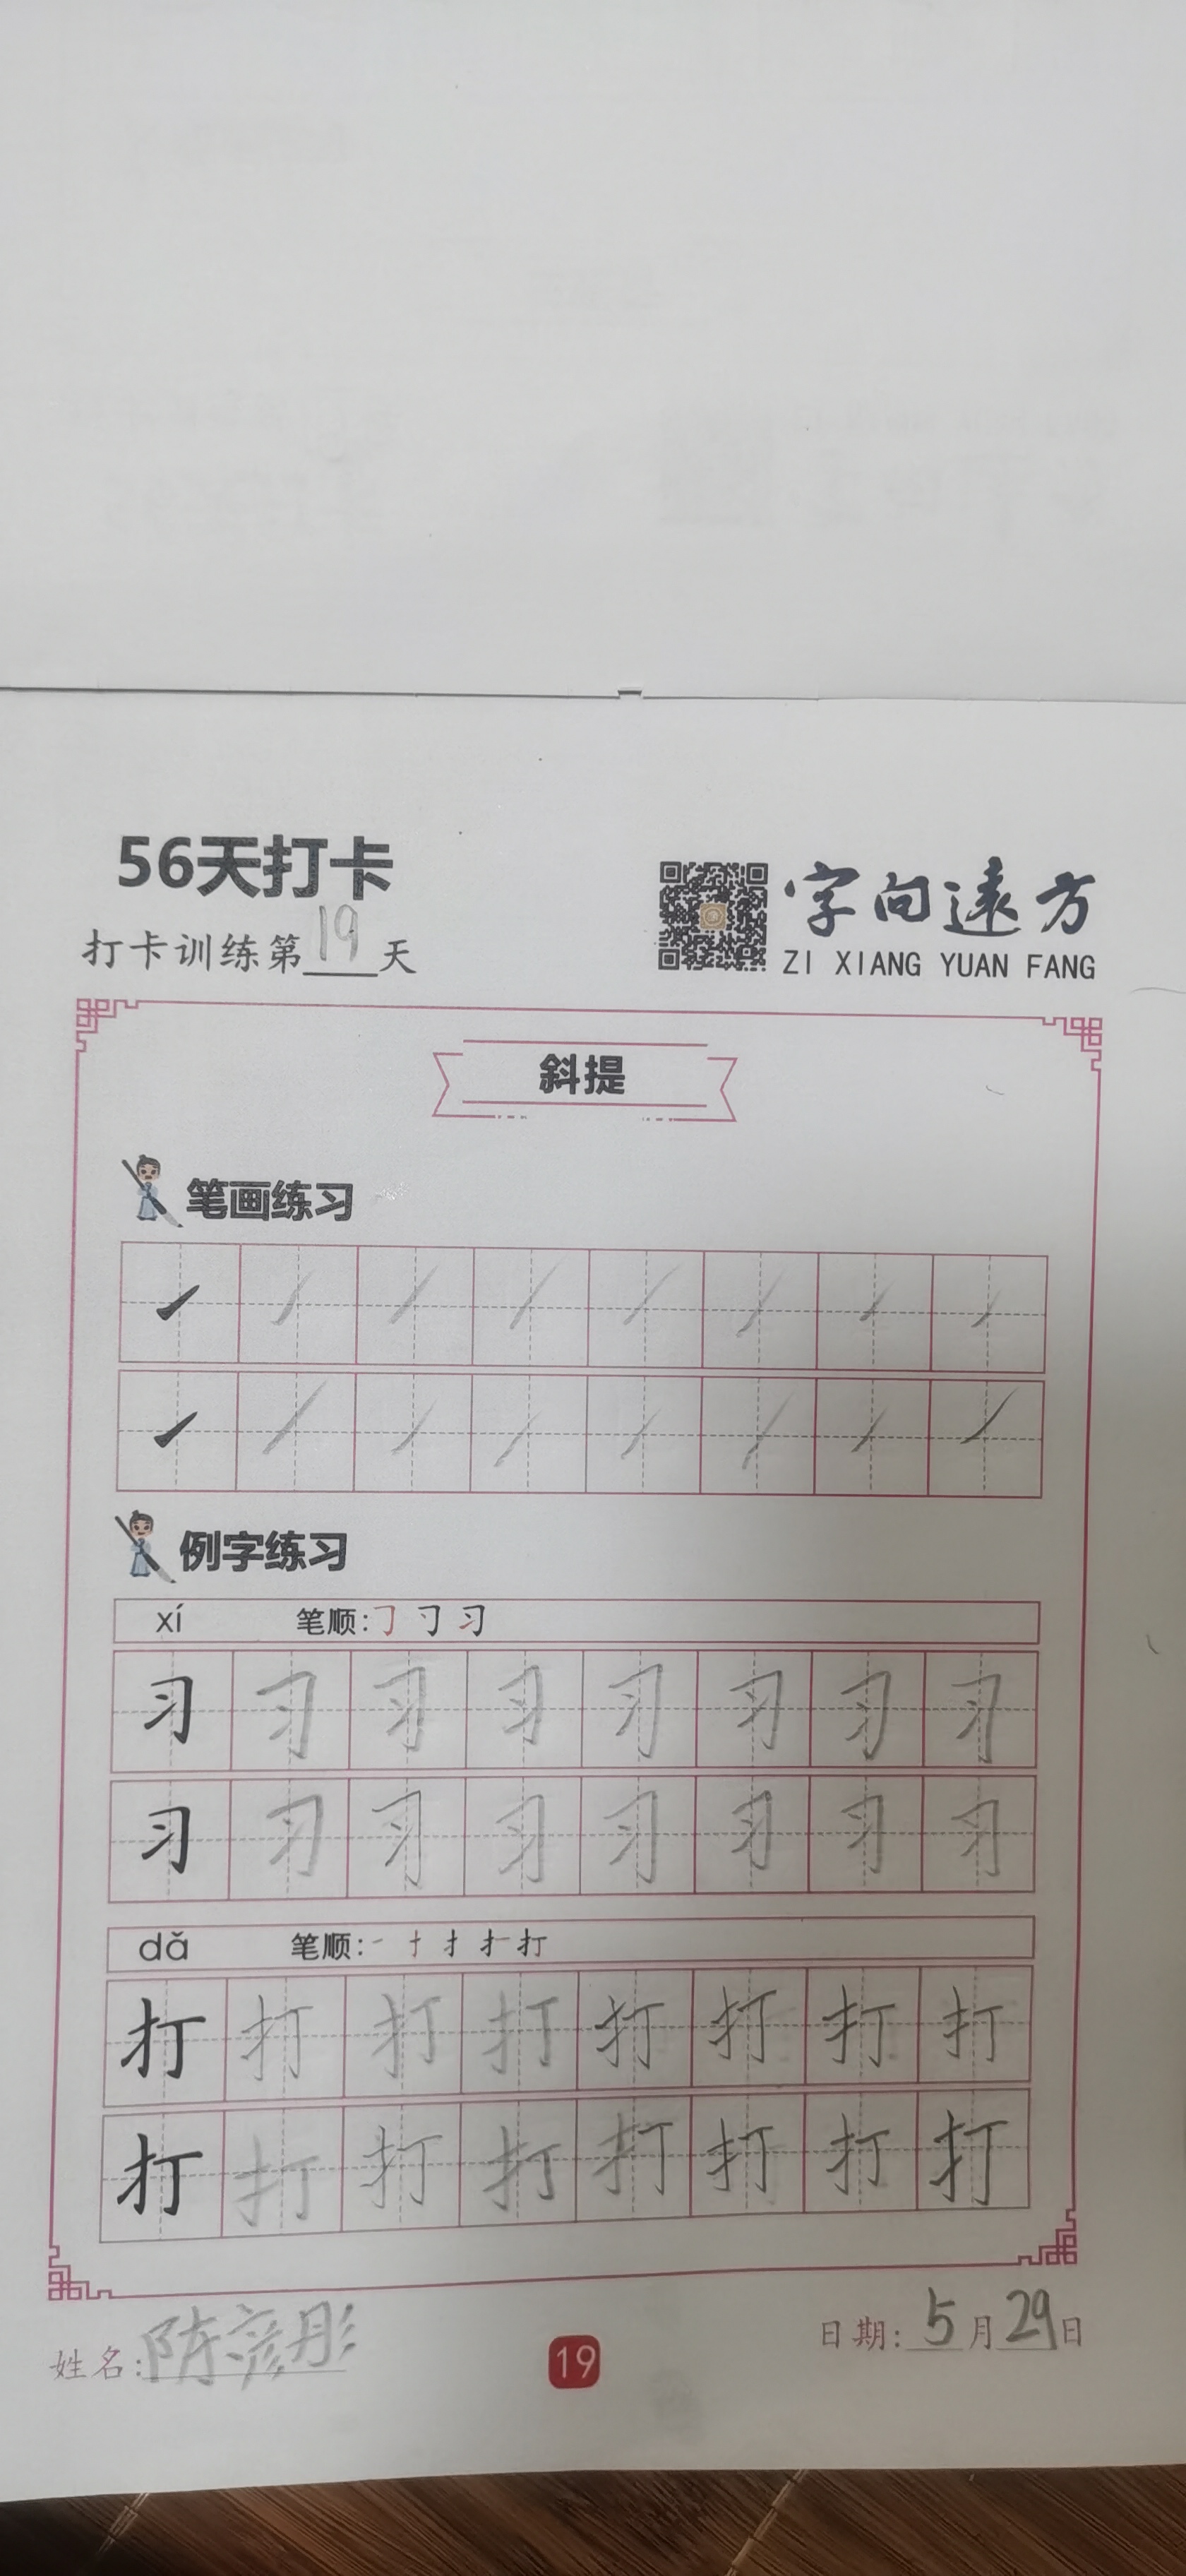 56天打卡
打卡训练第19天
字向遠方
ZI XIANG YUAN FANG
斜提
笔画练习
例字练习
xí 笔顺:㇆ 习
习 习 习 习 习 习 习 习
习 习 习 习 习 习 习 习
dǎ 笔顺:一 十 扌 打
打 打 打 打 打 打 打 打
打 打 打 打 打 打 打 打
姓名:陈彦彤
19
日期:5月29日